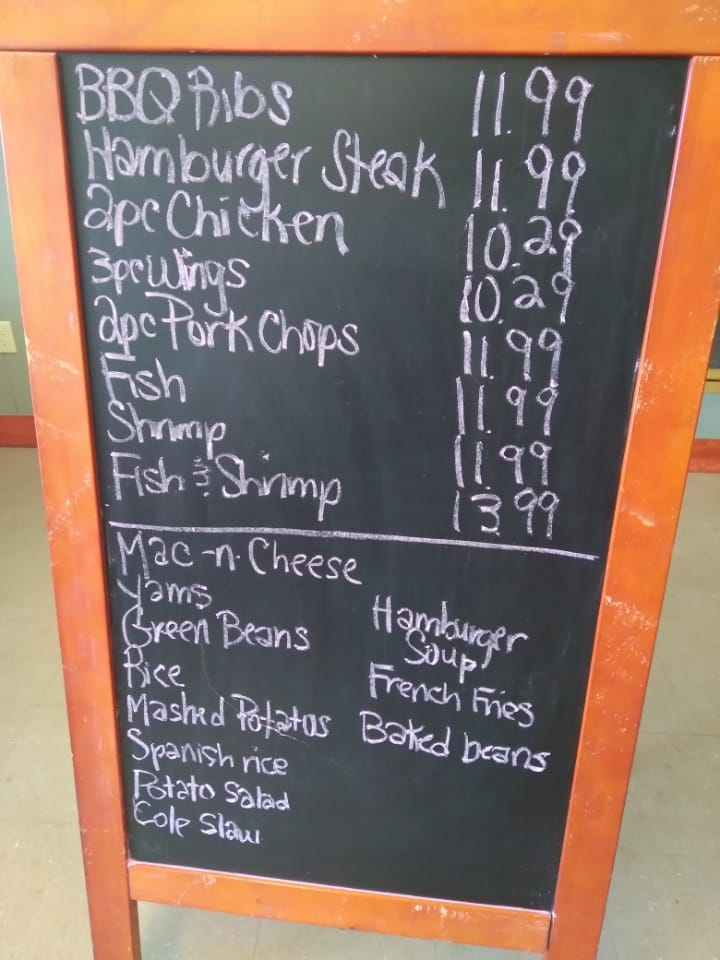 BBQ Ribs 11.99
Hamburger Steak 11.99
2pc Chicken 10.29
3pc Wings 10.29
2pc Pork Chops 11.99
Fish 11.99
Shrimp 11.99
Fish & Shrimp 13.99
Mac-n-Cheese
Yams
Green Beans
Rice
Mashed Potatos
Spanish rice
Potato Salad
Cole Slaw
Hamburger
Soup
French Fries
Baked beans